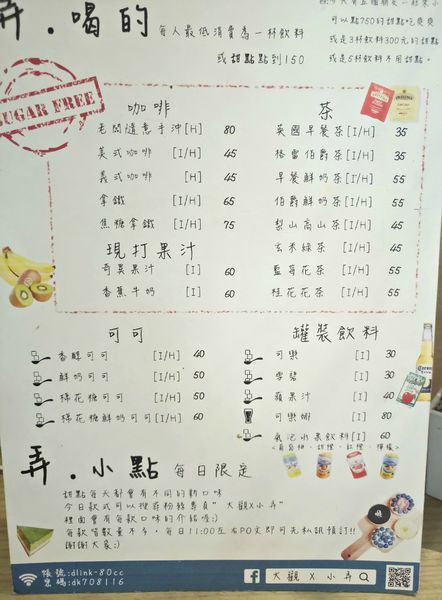 弄.喝的 每人最低消費為一杯飲料
或甜點點到150
可以點750的甜點吃爽爽
或是3杯飲料300元的甜點
或是5杯飲料不用甜點.
SUGAR FREE
咖啡
老闆隨意手沖[H] 80
美式咖啡 [I/H] 45
義式咖啡 [H] 45
拿鐵 [I/H] 65
焦糖拿鐵 [I/H] 75
現打果汁
奇異果汁 [I] 60
香蕉牛奶 [I] 60
茶
英國早餐茶[I/H] 35
格雷伯爵茶[I/H] 35
早餐鮮奶茶[I/H] 55
伯爵鮮奶茶[I/H] 55
梨山高山茶[I/H] 45
玄米綠茶 [I/H] 45
藍莓花茶 [I/H] 55
桂花花茶 [I/H] 55
可可
香醇可可 [I/H] 40
鮮奶可可 [I/H] 50
棉花糖可可[I/H] 50
棉花糖鮮奶可可[I/H] 60
罐裝飲料
可樂 [I] 30
雪碧 [I] 30
蘋果汁 [I] 40
可樂娜 [I] 80
氣泡水果飲料[I] 60
弄.小點 每日限定
甜點每天都會有不同的新口味
今日款式可以搜尋粉絲專頁"大觀X小弄"
裡面會有每款口味的介紹喔:)
每款皆數量不多，每日11:00左右PO文即可先私訊預訂!!
謝謝大家:)
帳號:dlink-80cc
密碼:dk708116
大觀 X 小弄